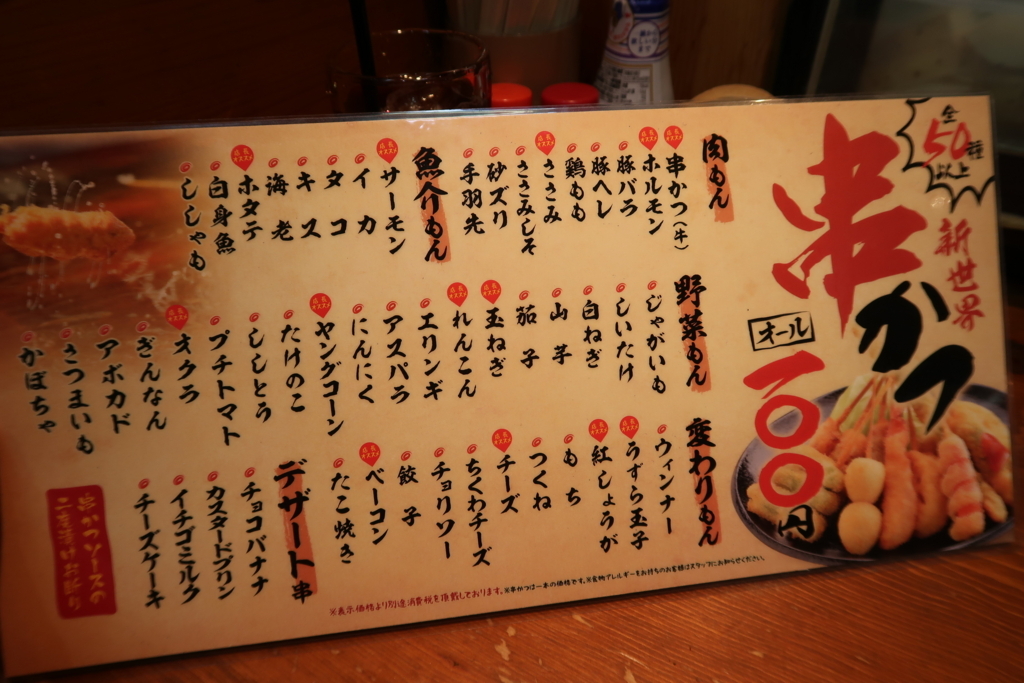 全
50種
以上
新世界
串かつ
オール
一〇〇円
肉もん
串かつ（牛）
ホルモン
豚バラ
豚ヘレ
鶏もも
ささみ
ささみしそ
砂ズリ
手羽先
魚介もん
サーモン
イカ
タコ
キス
海老
ホタテ
白身魚
ししゃも
野菜もん
じゃがいも
しいたけ
白ねぎ
山芋
茄子
玉ねぎ
れんこん
エリンギ
アスパラ
にんにく
ヤングコーン
たけのこ
ししとう
プチトマト
オクラ
ぎんなん
アボカド
さつまいも
かぼちゃ
変わりもん
ウィンナー
うずら玉子
紅しょうが
もち
つくね
チーズ
ちくわチーズ
チョリソー
餃子
ベーコン
たこ焼き
デザート串
チョコバナナ
カスタードプリン
イチゴミルク
チーズケーキ
串かつソースの
二度漬けお断り
※表示価格より別途消費税を頂戴しております。※串かつは一本の価格です。※食物アレルギーをお持ちのお客様はスタッフにお知らせください。